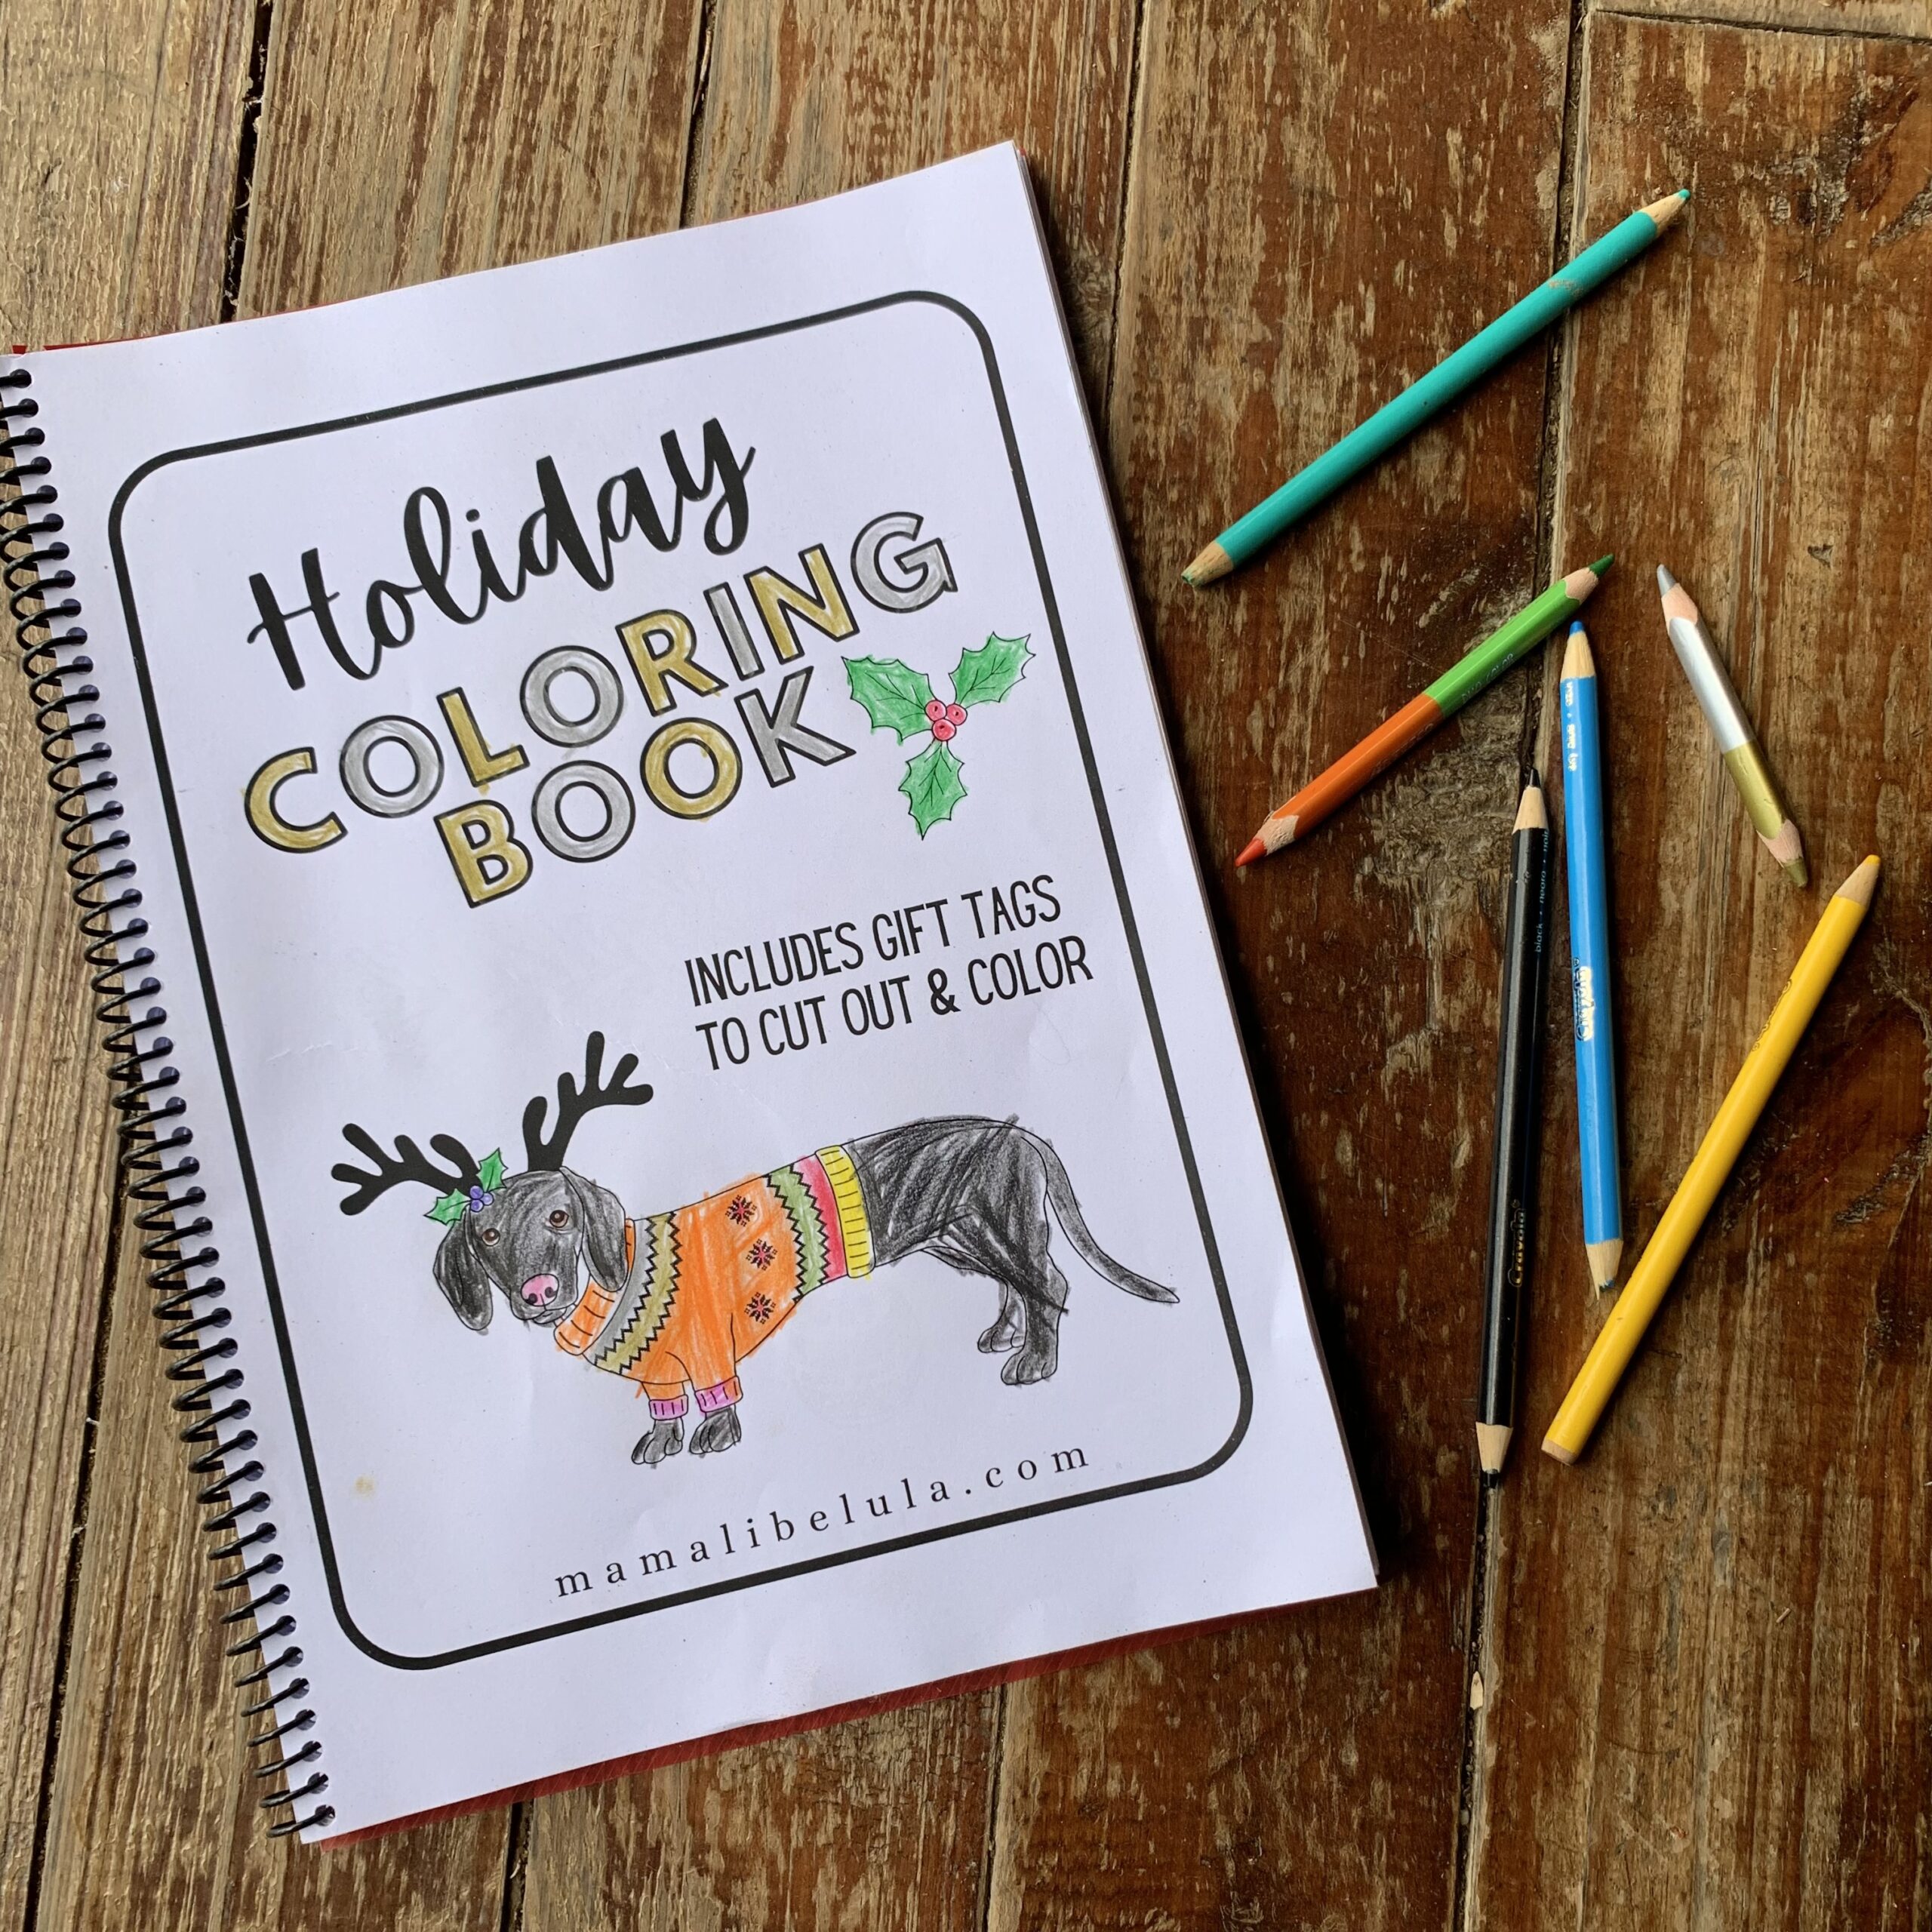 Holiday
COLORING
BOOK
INCLUDES GIFT TAGS
TO CUT OUT & COLOR
mamalibelula.com
black • negro • noir
Crayola